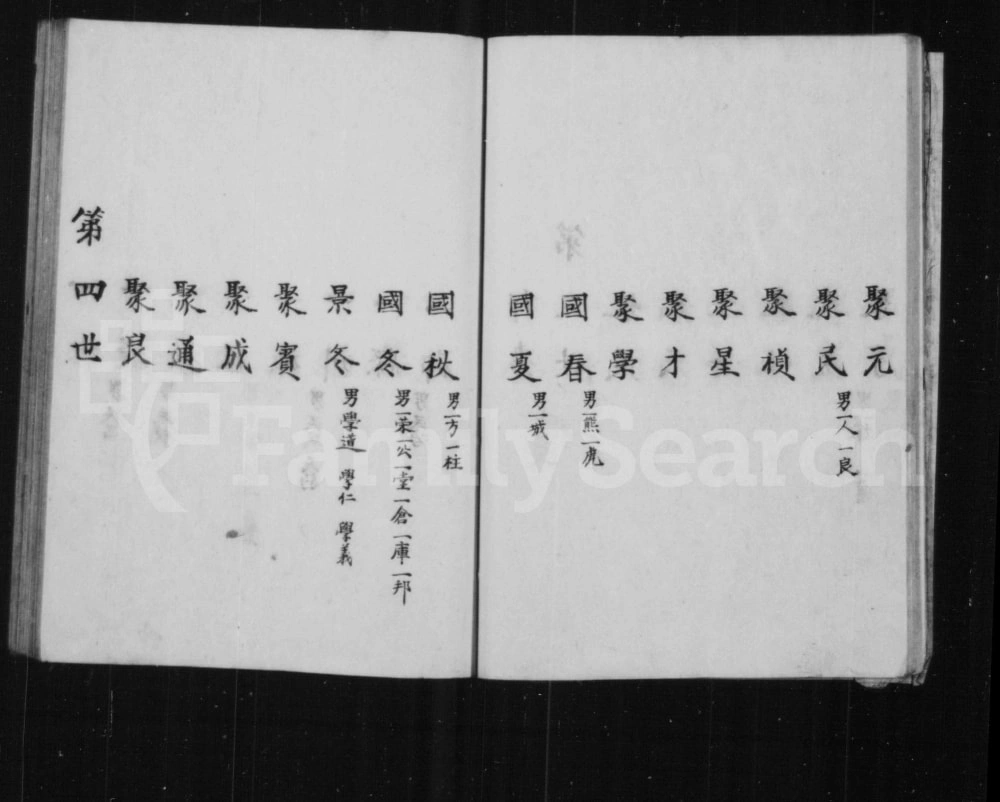 聚元
聚民 男一人一良
聚楨
聚星
聚才
聚學
國春 男一熊一虎
國夏 男一城
國秋 男一方一柱
國冬 男一荣一公一堂一倉一庫一邦
景冬 男學道 學仁 學義
聚賓
聚成
聚通
聚良
第四世
FamilySearch